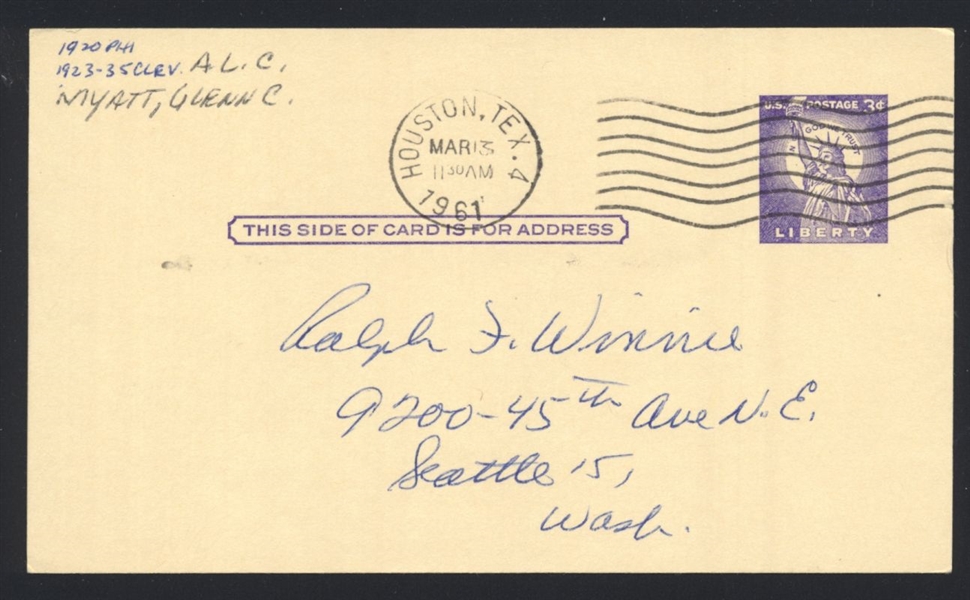 1920 PHI
1923-35 CLEV. A.L.C.
MYATT, GLENN C.
HOUSTON, TEX. 4
MAR 13
11 30 AM
1961
U.S. POSTAGE 3¢
IN GOD WE TRUST
LIBERTY
THIS SIDE OF CARD IS FOR ADDRESS
Ralph F. Winnie
9200-45th Ave N.E.
Seattle 15,
Wash.